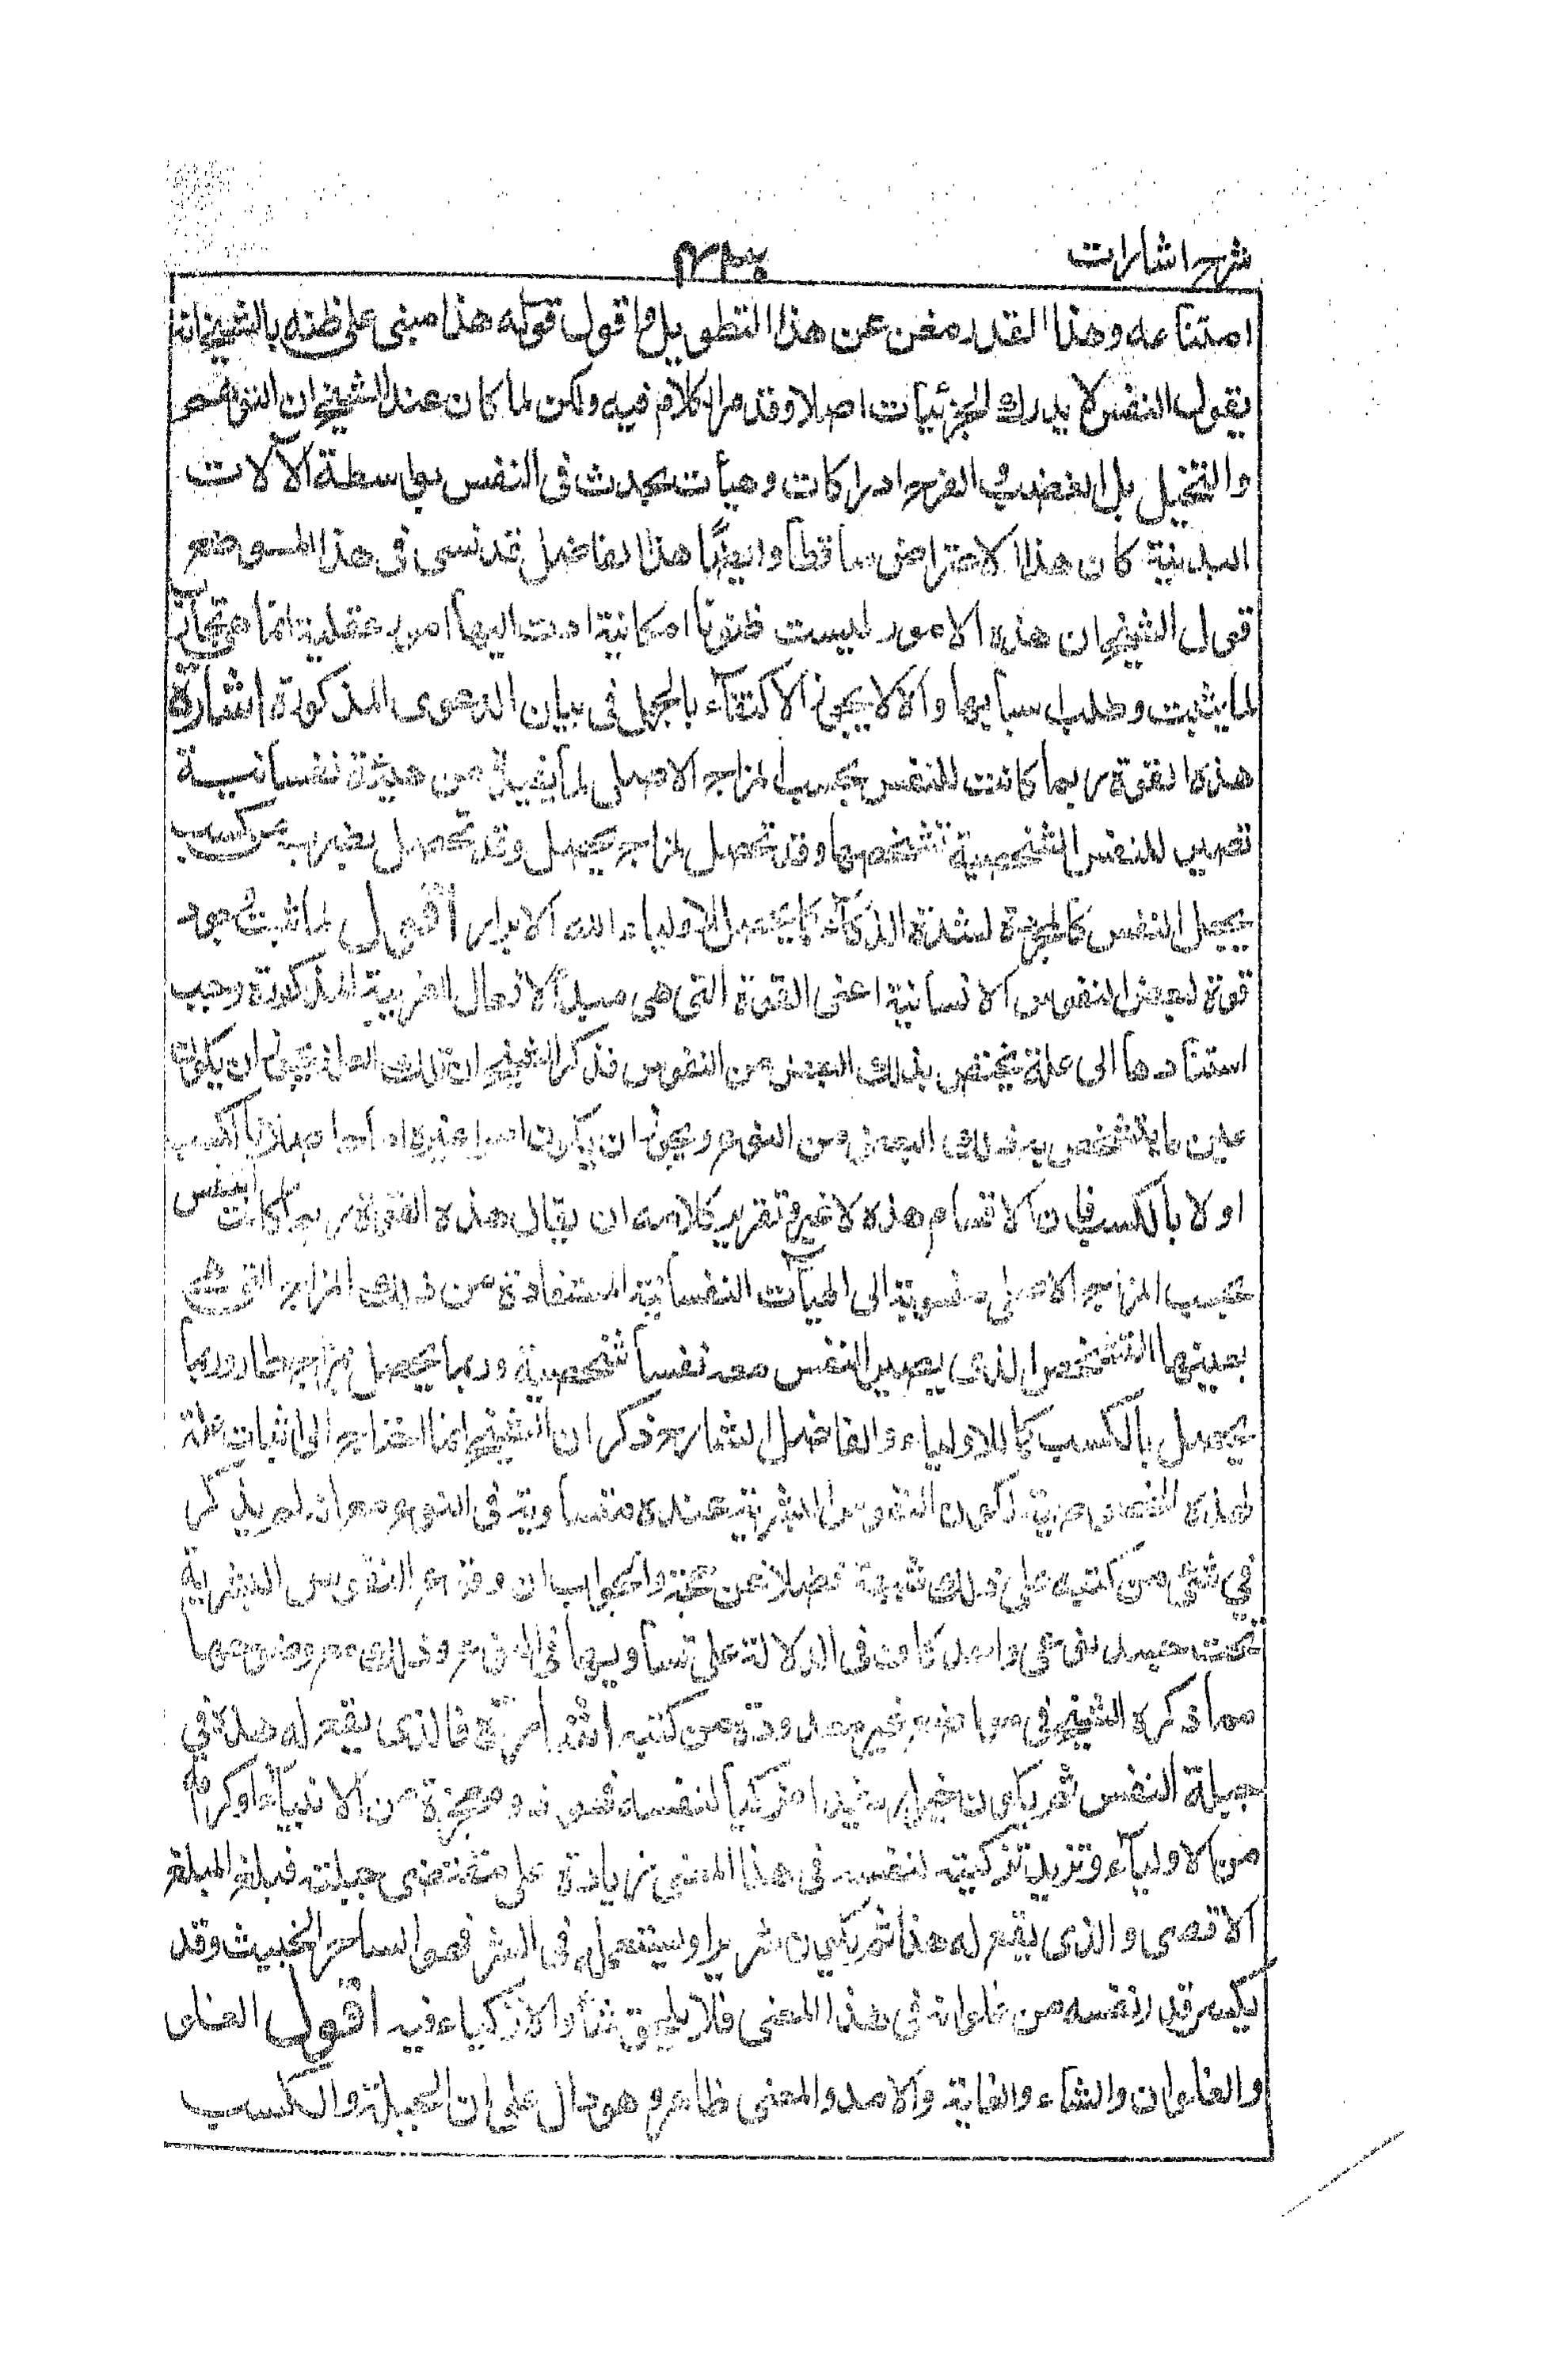 شرح اشارات
امتناعه وهذا القدر مغن عن هذا التطويل واقول قوله هذا مبنى على ظنه بالشيخ انه
يقول النفس لا يدرك الجزئيات اصلا وقد مر الكلام فيه ولكن لما كان عند الشيخ ان التوهم
والتخيل بل الغضب والفرح ادراكات وهيأت يحدث فى النفس بواسطة الآلات
البدنية كان هذا الاعتراض ساقطا وايضًا هذا الفاضل قد نسى فى هذا الموضع
قول الشيخ ان هذه الامور ليست ظنونا امكانية ادت اليها امور عقلية انما هى تجارب
لما يثبت وطلب سبابها والا لا يجوز الاكتفآء بالجمل فى بيان الدعوى المذكورة اشارة
هذه القوة ربما كانت للنفس بحسب المزاج الاصلى لما يفيده من هيئة نفسانية
تصير للنفس الشخصية تشخصها وقد تحصل لمزاج يحصل وقد تحصل بضرب من كسب
يجعل النفس كالمجردة لشدة الذكآء كما يحصل لاولياء الله الابرار اقول لما ثبت وجود
قوة لبعض النفوس الانسانية اعنى القوة التى هى مبدأ الافعال الغريبة المذكورة وجب
استنادها الى علة يختص بذلك البعض من النفوس فذكر الشيخ ان تلك العلة يجوز ان يكون
عين ما يتشخص به ذلك البعض من النوع ويجوز ان يكون امرا غيره اما حاصلا بالكسب
او لا بالكسب فان الاقسام هذه لا غير وتقرير كلامه ان يقال هذه القوة ربما كانت للنفس
بحسب المزاج الاصلى منسوبة الى الهيآت النفسانية المستفادة من ذلك المزاج التى هى
بعينها التشخص الذى يصير النفس معه نفسا شخصية وربما يحصل بمزاج طار وربما
يحصل بالكسب كما للاولياء والفاضل الشارح ذكر ان الشيخ انما احتاج الى اثبات علة
لهذه الخصوصية لكون النفوس البشرية عنده متساوية فى النوع مع انه لم يذكر
في شئ من كتبه على ذلك شبهة فضلا عن حجة والجواب ان وقوع النفوس البشرية
تحت حد نوعى واحد كاف فى الدلالة على تساويها فى النوع وذلك مع وضوحها
مما ذكره الشيخ فى مواضع غير معدودة من كتبه اشارة فالذى يقع له هذا في
جبلة النفس ثم يكون خيرا رشيدا مزكيا لنفسه فهو ذو معجزة من الانبيآء او كرامة
من الاوليآء وتزيد تزكيته لنفسه فى هذا المعنى زيادة على مقتضى جبلته فيبلغ المبلغ
الاقصى والذى يقع له هذا ثم يكون شريرا ويستعمله فى الشر فهو الساحر الخبيث وقد
يكسر قدر نفسه من غلوائه فى هذا المعنى فلا يلحق شأو الازكياء فيه اقول الغلو
والغلوان والشاء والغاية والامد والمعنى ظاهر وهو دال على ان الجبلة والكسب